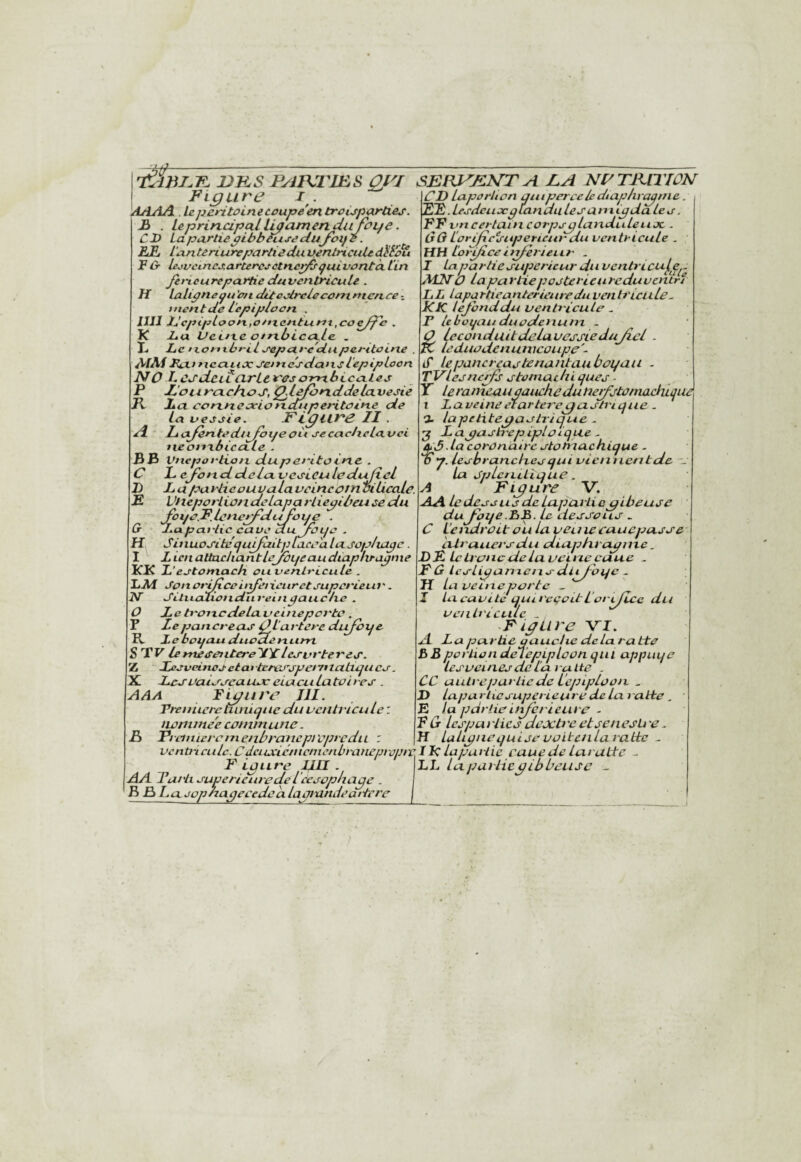 TABLE DES PARTIES QVI SERVENT A LA NVTRITION
Figure I.
AAAA. le peritoine coupe en trois parties.
B. le principal ligamen du foye.
CD La partie gibbeuse du foye.
EE L'anterieure partie du ventricule
FG les veines. arteres et nerfs qui vont a l'in
ferieure partie du ventricule.
H la ligne qu'on dit estre le commence-
ment de l'epiploon.
IIII L'epiploon, omentum, coeffe.
K La Veine ombicale.
L Le nombril separe du peritoine.
MM Rameaux semés dans l'epiploon
NO Les deux arteres ombicales
P L'ourachos, Q. le fond de la vesie
R La connexion du peritoine de
la vessie. Figure II.
A La fente du foye ou se cache la vei
ne ombicale.
BB Vne portion du peritoine.
C Le fond de la vesicule du fiel
D La partie ou y a la veine ombilicale.
E Vne portion de la partie gibeuse du
foye. F. le nerf du foye.
G La partie cave du foye.
H Sinuosité qui fait place a la sophage.
I Lien attachant le foye au diaphragme
KK L'estomach ou ventricule.
LM son orifice inferieur et superieur.
N Situation du rein gauche.
O Le tronc de la veine porte.
P Le pancreas Q l'artere du foye
R Le boyau duodenum
STV le mesentere YY les vrteres.
Z Les veines et arteres spermatiques.
X Les vaisseaux eiaculatoires.
AAA Figure III.
Premiere tunique du ventricule:
nommée commune.
B Premiere menbrane propre du:
ventricule. C deuxiéme menbrane propre
Figure IIII.
AA Partie superieure de l'œsophage.
BB La sophage cede a la grande artere
CD La portion qui perce le diaphragme.
EE. les deux glandules amigdales.
FF vn certain corps glanduleux.
GG L'orifice superieur du ventricule.
HH L'orifice inferieur.
I La partie superieur du ventricule.
MNO La partie posterieure du ventri
LL la partie anterieure du ventricule.
KK le fond du ventricule.
P le boyau duodenum.
Q le conduit de la vessie du fiel.
R le duodenum coupe.
S le pancreas tenant au boyau.
TV les nerfs stomachiques.
Y le rameau gauche du nerf stomachique
1 La veine et artere gastrique.
2 la petite gastrique.
3 La gastrepiploique.
4,5. la coronaire stomachique.
6 7. les branches qui viennent de
la splenique.
Figure V.
A
AA le dessus de la partie gibeuse
du foye. BB. le dessous.
C L'endroit ou la veine cave passe
a trauers du diaphragme.
DE le tronc de la veine caue.
FG les ligamens du foye.
H la veine porte
I la cavité qui reçoit l'orifice du
ventricule
Figure VI.
A La partie gauche de la ratte
BB portion de l'epiploon qui appuye
les veines de la ratte
CC autre partie de l'epiploon.
D la partie superieure de la ratte.
E la partie inferieure.
FG les parties dextre et senestre.
H la ligne qui se voit en la ratte.
IK la partie caue de la ratte.
LL la partie gibbeuse.